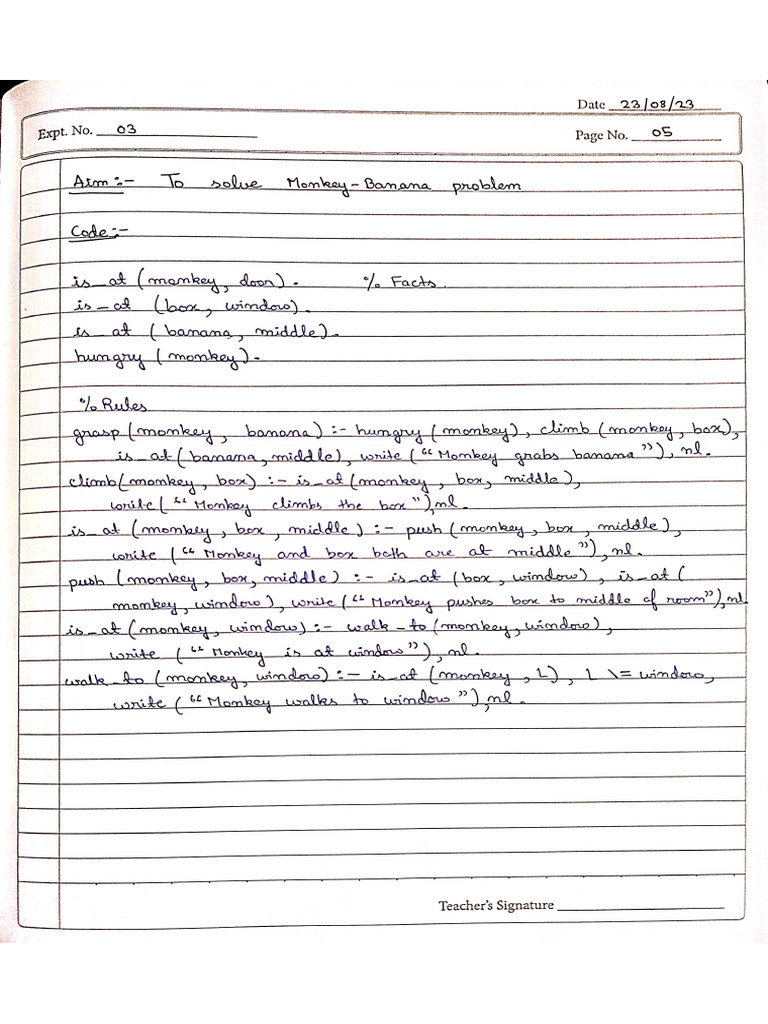 Date 23/08/23
Expt. No. 03
Page No. 05
Aim:- To solve Monkey-Banana problem
Code:-
is_at (monkey, door). % Facts.
is_at (box, window).
is_at (banana, middle).
hungry (monkey).
% Rules
grasp (monkey, banana) :- hungry (monkey), climb (monkey, box),
is_at (banana, middle), write (“Monkey grabs banana”), nl.
climb(monkey, box) :- is_at (monkey, box, middle),
write (“Monkey climbs the box”),nl.
is_at (monkey, box, middle) :- push (monkey, box, middle),
write (“Monkey and box both are at middle”), nl.
push (monkey, box, middle) :- is_at (box, window), is_at (
monkey, window), write (“Monkey pushes box to middle of room”),nl
is_at (monkey, window) :- walk_to (monkey, window),
write (“Monkey is at window”), nl.
walk_to (monkey, window) :- is_at (monkey, L), L \= window,
write (“Monkey walks to window”),nl.
Teacher's Signature